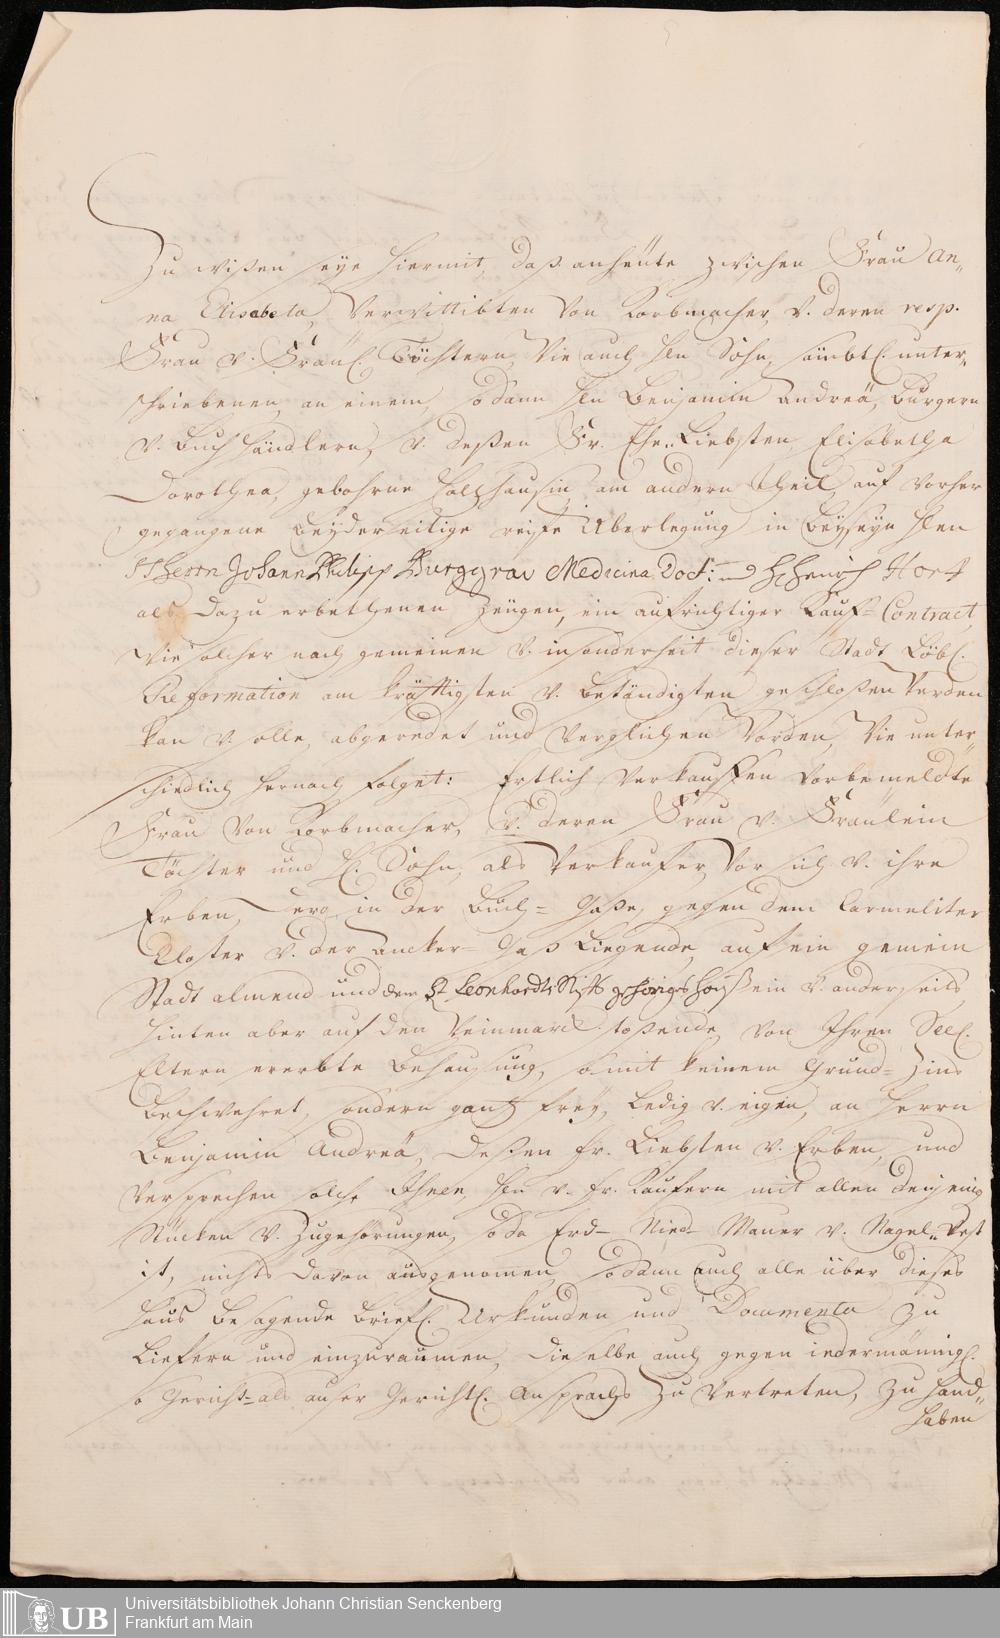 Zu wißen seye hiermit, daß anheute zwischen Frau An„
na Elisabeta, verwittibten von Korbmacher, v. deren resp.
Frau v. Fräul. Töchtern, wie auch Hln Sohn, sämbtl. unter„
schriebenen, an einem, sodann Hln Benjamin Andreä, Burgern
v. Buchhändlern, v. deßen Fr. Ehe„Liebsten, Elisabetha
Dorothea, gebohrne Holzhausin, am andern Theil, auf vorher
gegangene beyderseitige reiffe Uberlegung in beyseyn Hlen
Herrn Johann Philipp Burggrav Medicina Doct: und H. Henrich Hort
als dazu erbethenen Zeugen, ein aufrichtiger Kauf-Contract,
wie solcher nach gemeinen v. insonderheit dieser Stadt Löbl.
Reformation am kräftigsten v. beständigsten geschloßen werden
kan v. solle, abgeredet und verglichen worden, wie unter„
schiedlich hernach folget: Erstlich verkauffen vorbemeldte
Frau von Korbmacher, v. deren Frau v. Fräulein
Töchter und H. Sohn, als verkaufer, vor sich v. ihre
Erben, dero in der Buch=Gaße, gegen dem Carmeliter
Closter v. der Ancker-Gaß liegende, auf ein gemein
Stadt almend und dem St. Leonhardts Stifft gehöriges Hauß ein v. anderseits,
hinten aber auf den Weinmarck stoßende, von Ihren Seel.
Eltern ererbte Behausung, so mit keinem Grund=Zins
beschwehret, sondern gantz frey, ledig v. eigen, an Herrn
Benjamin Andreä, deßen Fr. Liebsten v. Erben, und
versprechen solche Ihnen, Hln v. Fr. Kaufern mit allen denjenig
Stücken v. Zugehörungen, so da Erd- Nied- Mauer v. Nagel„vest
ist, nichts davon ausgenomen, sodann auch alle über dieses
Haus besagende briefl. Urkunden und Documenta zu
liefern und einzuraumen, dieselbe auch gegen iedermännigl.
so Gericht-als auser Gerichtl. Ansprachs zu vertreten, zu hand„
haben
Universitätsbibliothek Johann Christian Senckenberg
UB Frankfurt am Main